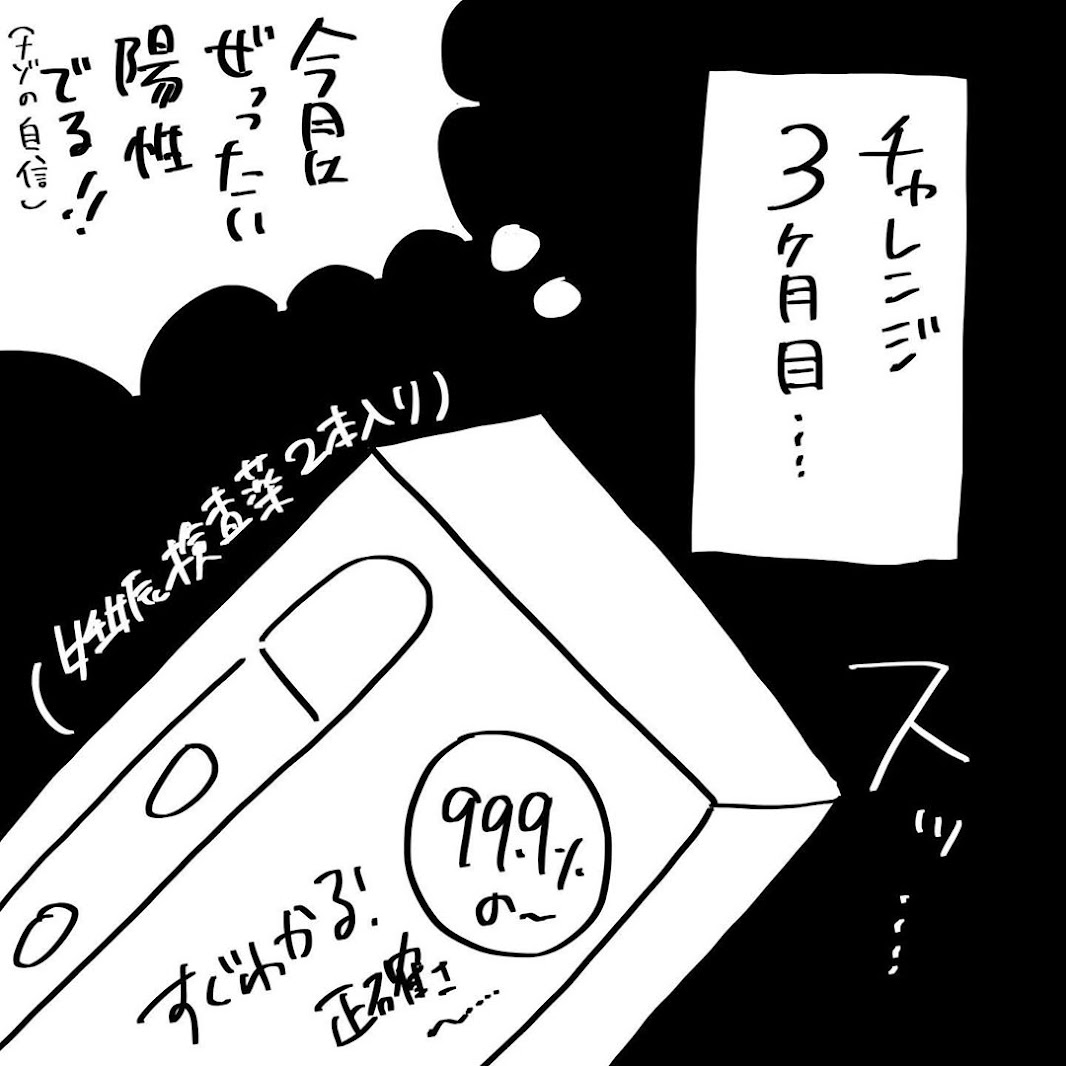 チャレンジ
3ヶ月目…
今月は
ぜったい
陽性
でる!!
(ナゾの自信)
(妊娠検査薬2本入り)
99.9%
の〜
すぐわかる!
正確さ
〜……
スッ…